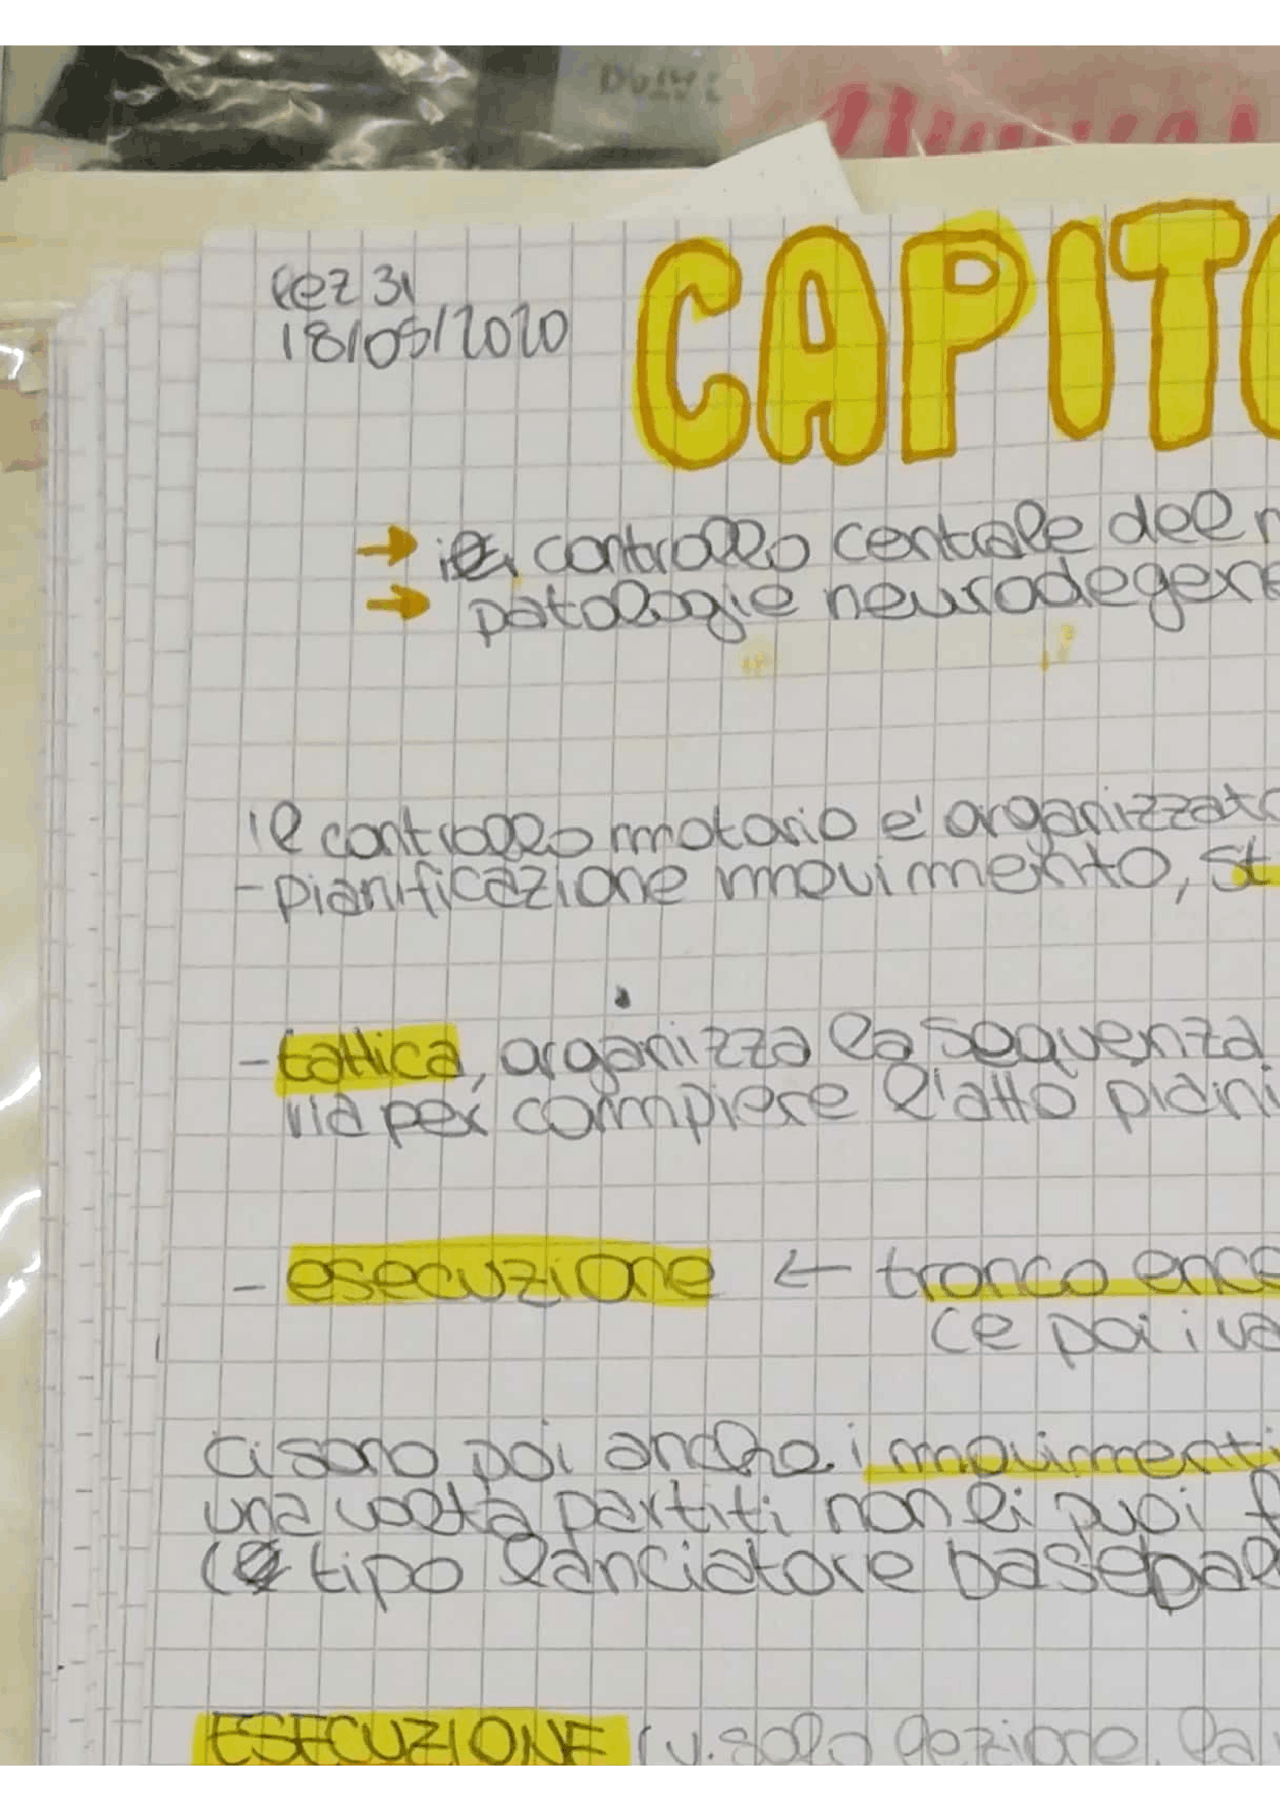 lez 31
18/05/2020
CAPITO
→ il controllo centrale del
→ patologie neurodegene
il controllo motorio e' organizzato
- pianificazione movimento, st
- tattica, organizza la sequenza
via per compiere l'atto piani
- esecuzione ← tronco ence
ce poi i va
ci sono poi anche i movimenti
una volta partiti non li puoi f
( tipo lanciatore basebal
ESECUZIONE (v. solo lezione